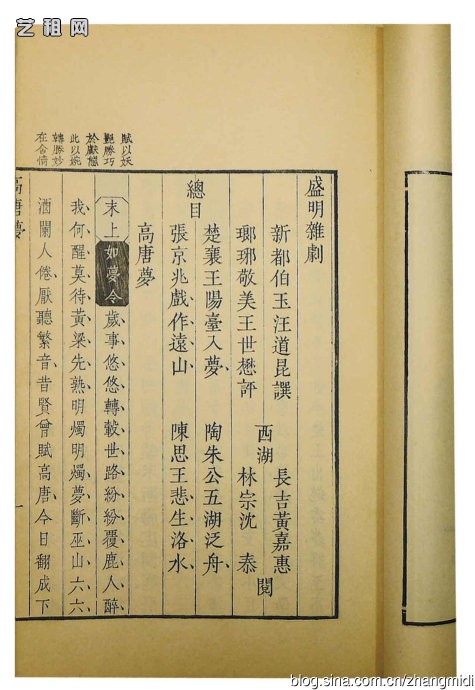 艺租网
賦以妖
艷勝巧
於獻態
此以婉
轉勝妙
在含情
盛明雜劇
新都伯玉汪道昆譔
瑯琊敬美王世懋評
西湖
長吉黃嘉惠
林宗沈泰
閱
總目
楚襄王陽臺入夢 陶朱公五湖泛舟
張京兆戲作遠山 陳思王悲生洛水
高唐夢
末上 如夢令 歲事悠悠轉轂世路紛紛覆鹿人醉
我何醒莫待黃梁先熟明燭明燭夢斷巫山六六
酒闌人倦厭聽繁音昔賢曾賦高唐今日翻成下
高唐夢 一
blog.sina.com.cn/zhangmidi